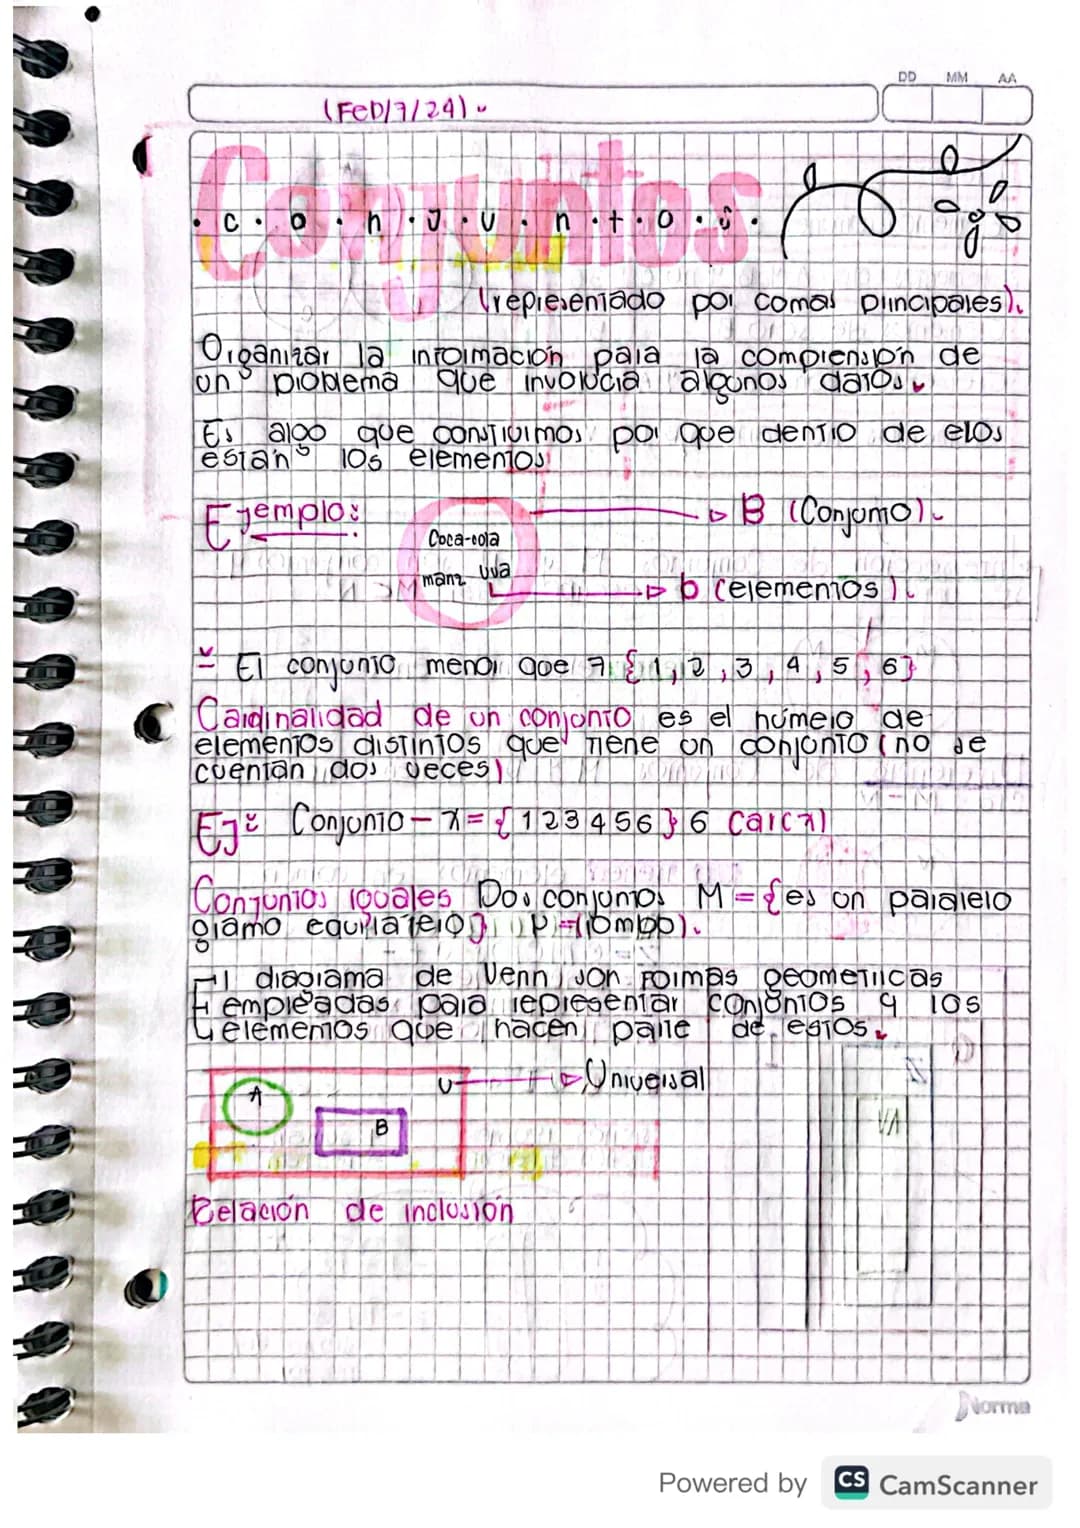 DD MM AA
(Feb/7/24).
Conjuntos
. c . o . n . j . u . n . t . o . s .
(representado por comas principales).
Organizar la información para la comprensión de
un problema que involucra algunos datos.
Es algo que construimos por que dentro de elos
están los elementos
Ejemplo:
B (Conjunto).
Coca-cola
manz uva
b (elementos).
El conjunto menor que 7 {1,2,3,4,5,6}
Cardinalidad de un conjunto es el número de
elementos distintos que tiene un conjunto (no se
cuentan dos veces)
Ej: Conjunto - x = {123456} 6 Car(x)
Conjuntos iguales Dos conjuntos M = {es un paralelo
gramo equilatero} P = (rombo).
El diagrama de Venn son Formas geometricas
empleadas para representar conjuntos y los
elementos que hacen parte de estos.
A
B
U
Universal
Relación de inclusión
Norma
Powered by CS CamScanner